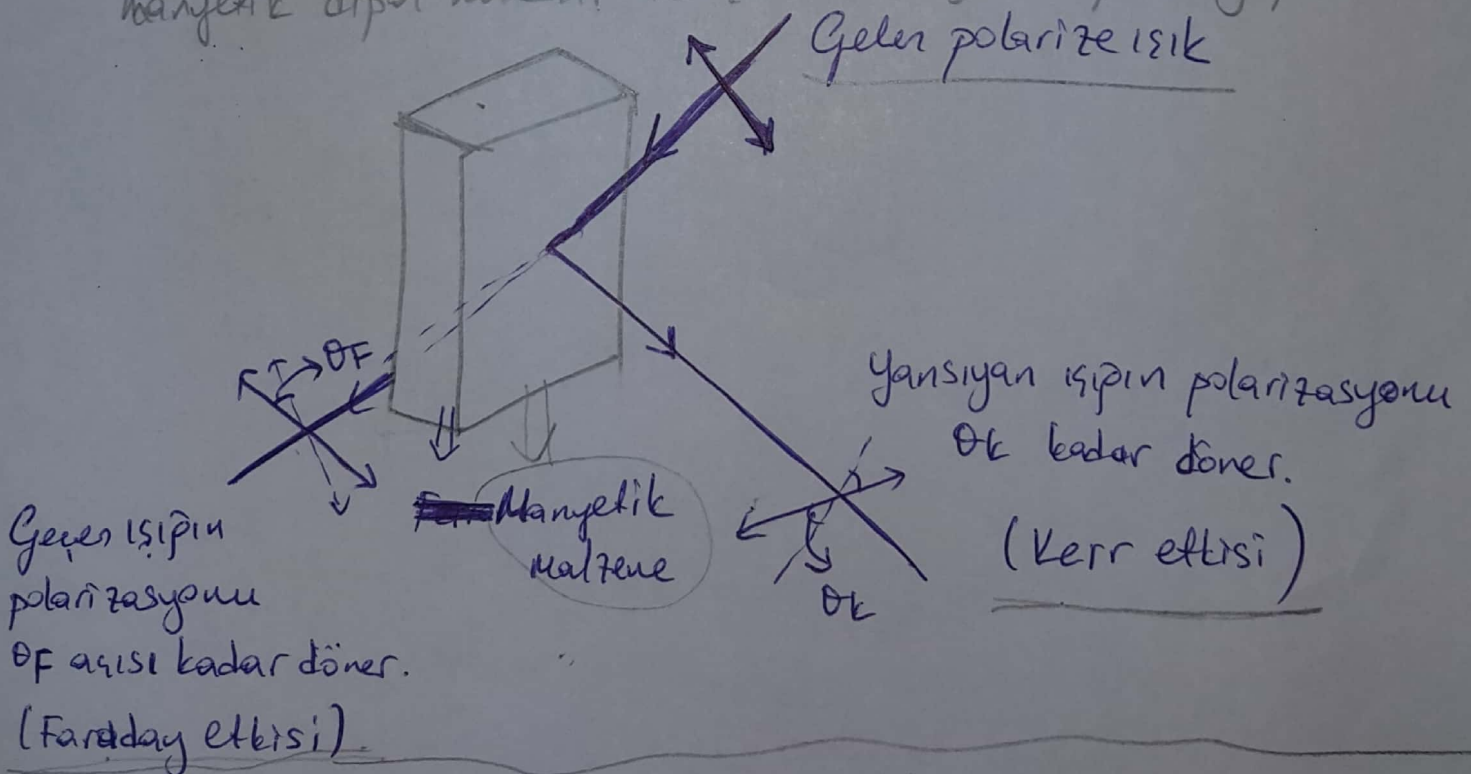 manyetik dipol
Gelen polarize ışık
θF
Yansıyan ışığın polarizasyonu
θk kadar döner.
(Kerr etkisi)
Manyetik
malzeme
θk
Geçen ışığın
polarizasyonu
θF açısı kadar döner.
(Faraday etkisi).